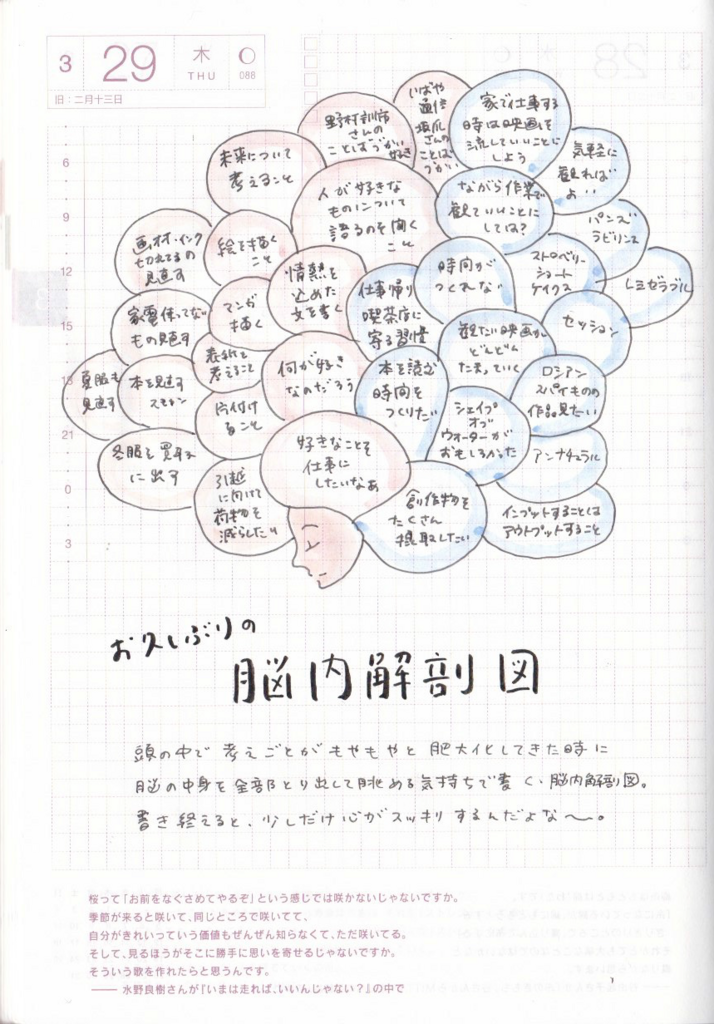 3
29
木
THU
088
旧：二月十三日
6
9
12
15
18
21
0
3
いばや
通信
さんの
ことば
づかい
野村訓市
さんの
ことばづかい好き
家で仕事する
時は映画を
流していいことに
しよう
気軽に
観れば
よい
未来について
考えること
人が好きな
ものについて
語るのを聞く
こと
ながら作業で
観ていいことに
しては？
パンズ
ラビリンス
画材・インク
切れてるの
見直す
絵を描く
こと
情熱を
込めた
文を書く
仕事帰り
喫茶店に
寄る習慣
時間が
つくれない
ストロベリー
ショート
ケイクス
レミゼラブル
家電使ってない
もの見直す
マンガ
描く
表紙を
考えること
何が好き
なのだろう
本を読む
時間を
つくりたい
観たい映画が
どんどん
たまっていく
セッション
夏服も
見直す
本を見直す
片付け
ること
シェイプ
オブ
ウォーターが
おもしろかった
ロシアン
スパイものの
作品見たい
冬服を買取
に出す
引越
に向けて
荷物を
減らしたい
好きなことを
仕事に
したいなあ
創作物を
たくさん
摂取したい
アンナチュラル
インプットすることは
アウトプットすること
お久しぶりの
脳内解剖図
頭の中で考えごとがもやもやと肥大化してきた時に
脳の中身を全部とり出して眺める気持ちで書く、脳内解剖図。
書き終えると、少しだけ心がスッキリするんだよな〜。
桜って「お前をなぐさめてやるぞ」という感じでは咲かないじゃないですか。
季節が来ると咲いて、同じところで咲いてて、
自分がきれいっていう価値もぜんぜん知らなくて、ただ咲いてる。
そして、見るほうがそこに勝手に思いを寄せるじゃないですか。
そういう歌を作れたらと思うんです。
―― 水野良樹さんが『いまは走れば、いいんじゃない？』の中で